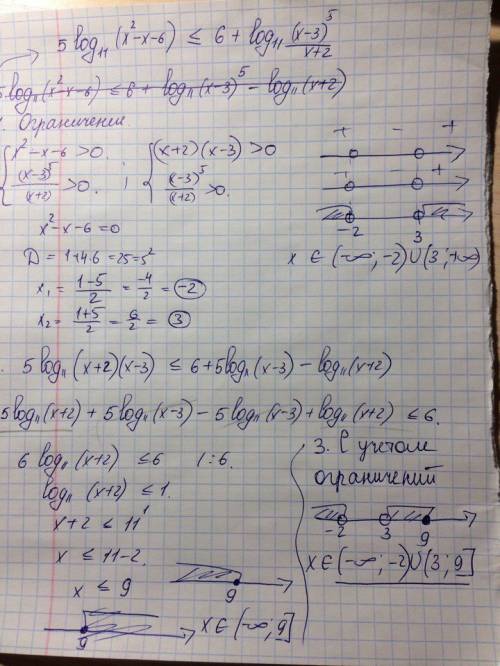 5 log₁₁ (x²-x-6) ≤ 6 + log₁₁ (x-3)⁵/(x+2)
5 log₁₁(x²-x-6) ≤ 6 + log₁₁(x-3)⁵ - log₁₁(x+2)
1. Ограничения.
{ x²-x-6 > 0. ; { (x+2)(x-3) > 0
{ (x-3)⁵/(x+2) > 0. { (x-3)⁵/(x+2) > 0.
+ - +
+ - +
-2 3
x²-x-6=0
x ∈ (-∞; -2)∪(3; +∞)
D = 1+4·6 = 25 = 5²
x₁ = (1-5)/2 = -4/2 = -2
x₂ = (1+5)/2 = 6/2 = 3
5 log₁₁ (x+2)(x-3) ≤ 6 + 5 log₁₁ (x-3) - log₁₁(x+2)
5 log₁₁(x+2) + 5 log₁₁(x-3) - 5 log₁₁(x-3) + log₁₁(x+2) ≤ 6.
6 log₁₁ (x+2) ≤ 6 /:6.
log₁₁ (x+2) ≤ 1.
x+2 ≤ 11¹
x ≤ 11-2.
x ≤ 9
9
9
x ∈ (-∞; 9]
3. С учетом
ограничений
-2 3 9
x ∈ (-∞; -2)∪(3; 9]